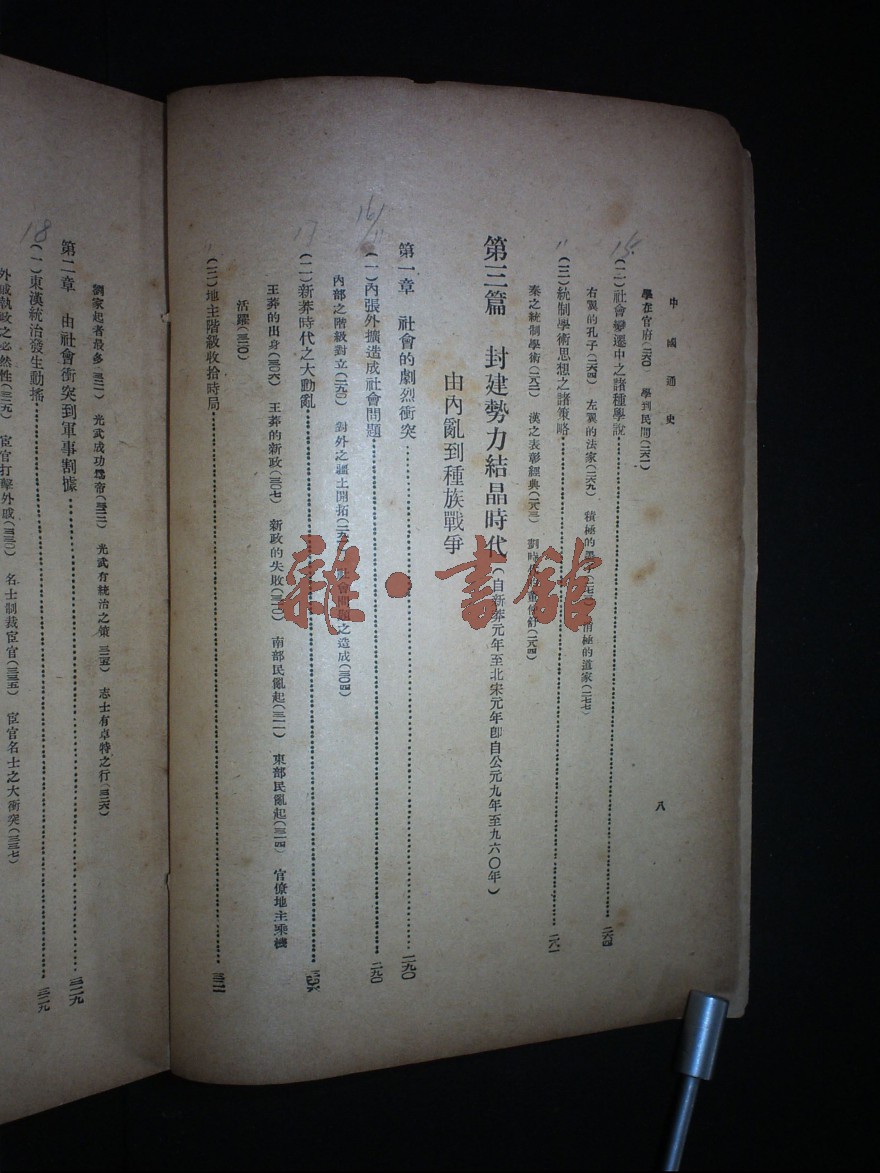 中國通史
八
學在官府(二六〇) 學到民間(二六一)
15
(二)社會變遷中之諸種學說 二六四
右翼的孔子(二六四) 左翼的法家(二六九) 積極的墨 消極的道家(二七七)
(三)統制學術思想之諸策略 二八一
秦之統制學術(二八二) 漢之表彰經典(二八三) 劃時
第三篇 封建勢力結晶時代(自新莽元年至北宋元年卽自公元九年至九六〇年)
由內亂到種族戰爭
第一章 社會的劇烈衝突 二九〇
16
(一)內張外擴造成社會問題 二九〇
內部之階級對立(二九〇) 對外之疆土開拓 社會問題之造成(三〇四)
17
(二)新莽時代之大動亂
王莽的出身(三〇六) 王莽的新政(三〇七) 新政的失敗(三一〇) 南部民亂起(三一一) 東部民亂起(三一四) 官僚地主乘機
活躍(三二〇)
(三)地主階級收拾時局 三二二
劉家起者最多 光武成功爲帝 光武有統治之策 志士有卓特之行(三二六)
第二章 由社會衝突到軍事割據 三二九
18
(一)東漢統治發生動搖 三二九
外戚執政之必然性(三二九) 宦官打擊外戚 名士制裁宦官(三三五) 宦官名士之大衝突(三三七)
雜·書館